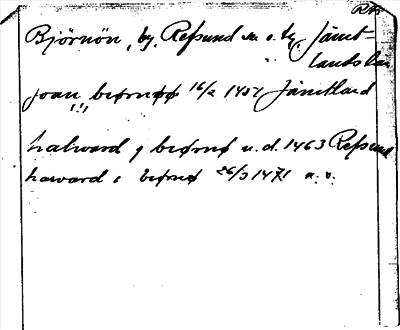 RA
Björnön, by, Refsund sn o. tg, Jämt-
lands län
joan, beørnøø 16/2 1451 Jämtland
(!)
halward j beørnø u.d. 1463 Refsund
haward i beørnø 26/3 1471 a. o.